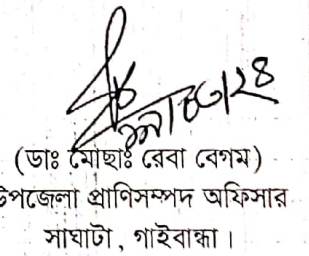 (ডাঃ মোছাঃ রেবা বেগম)
উপজেলা প্রাণিসম্পদ অফিসার
সাঘাটা, গাইবান্ধা।